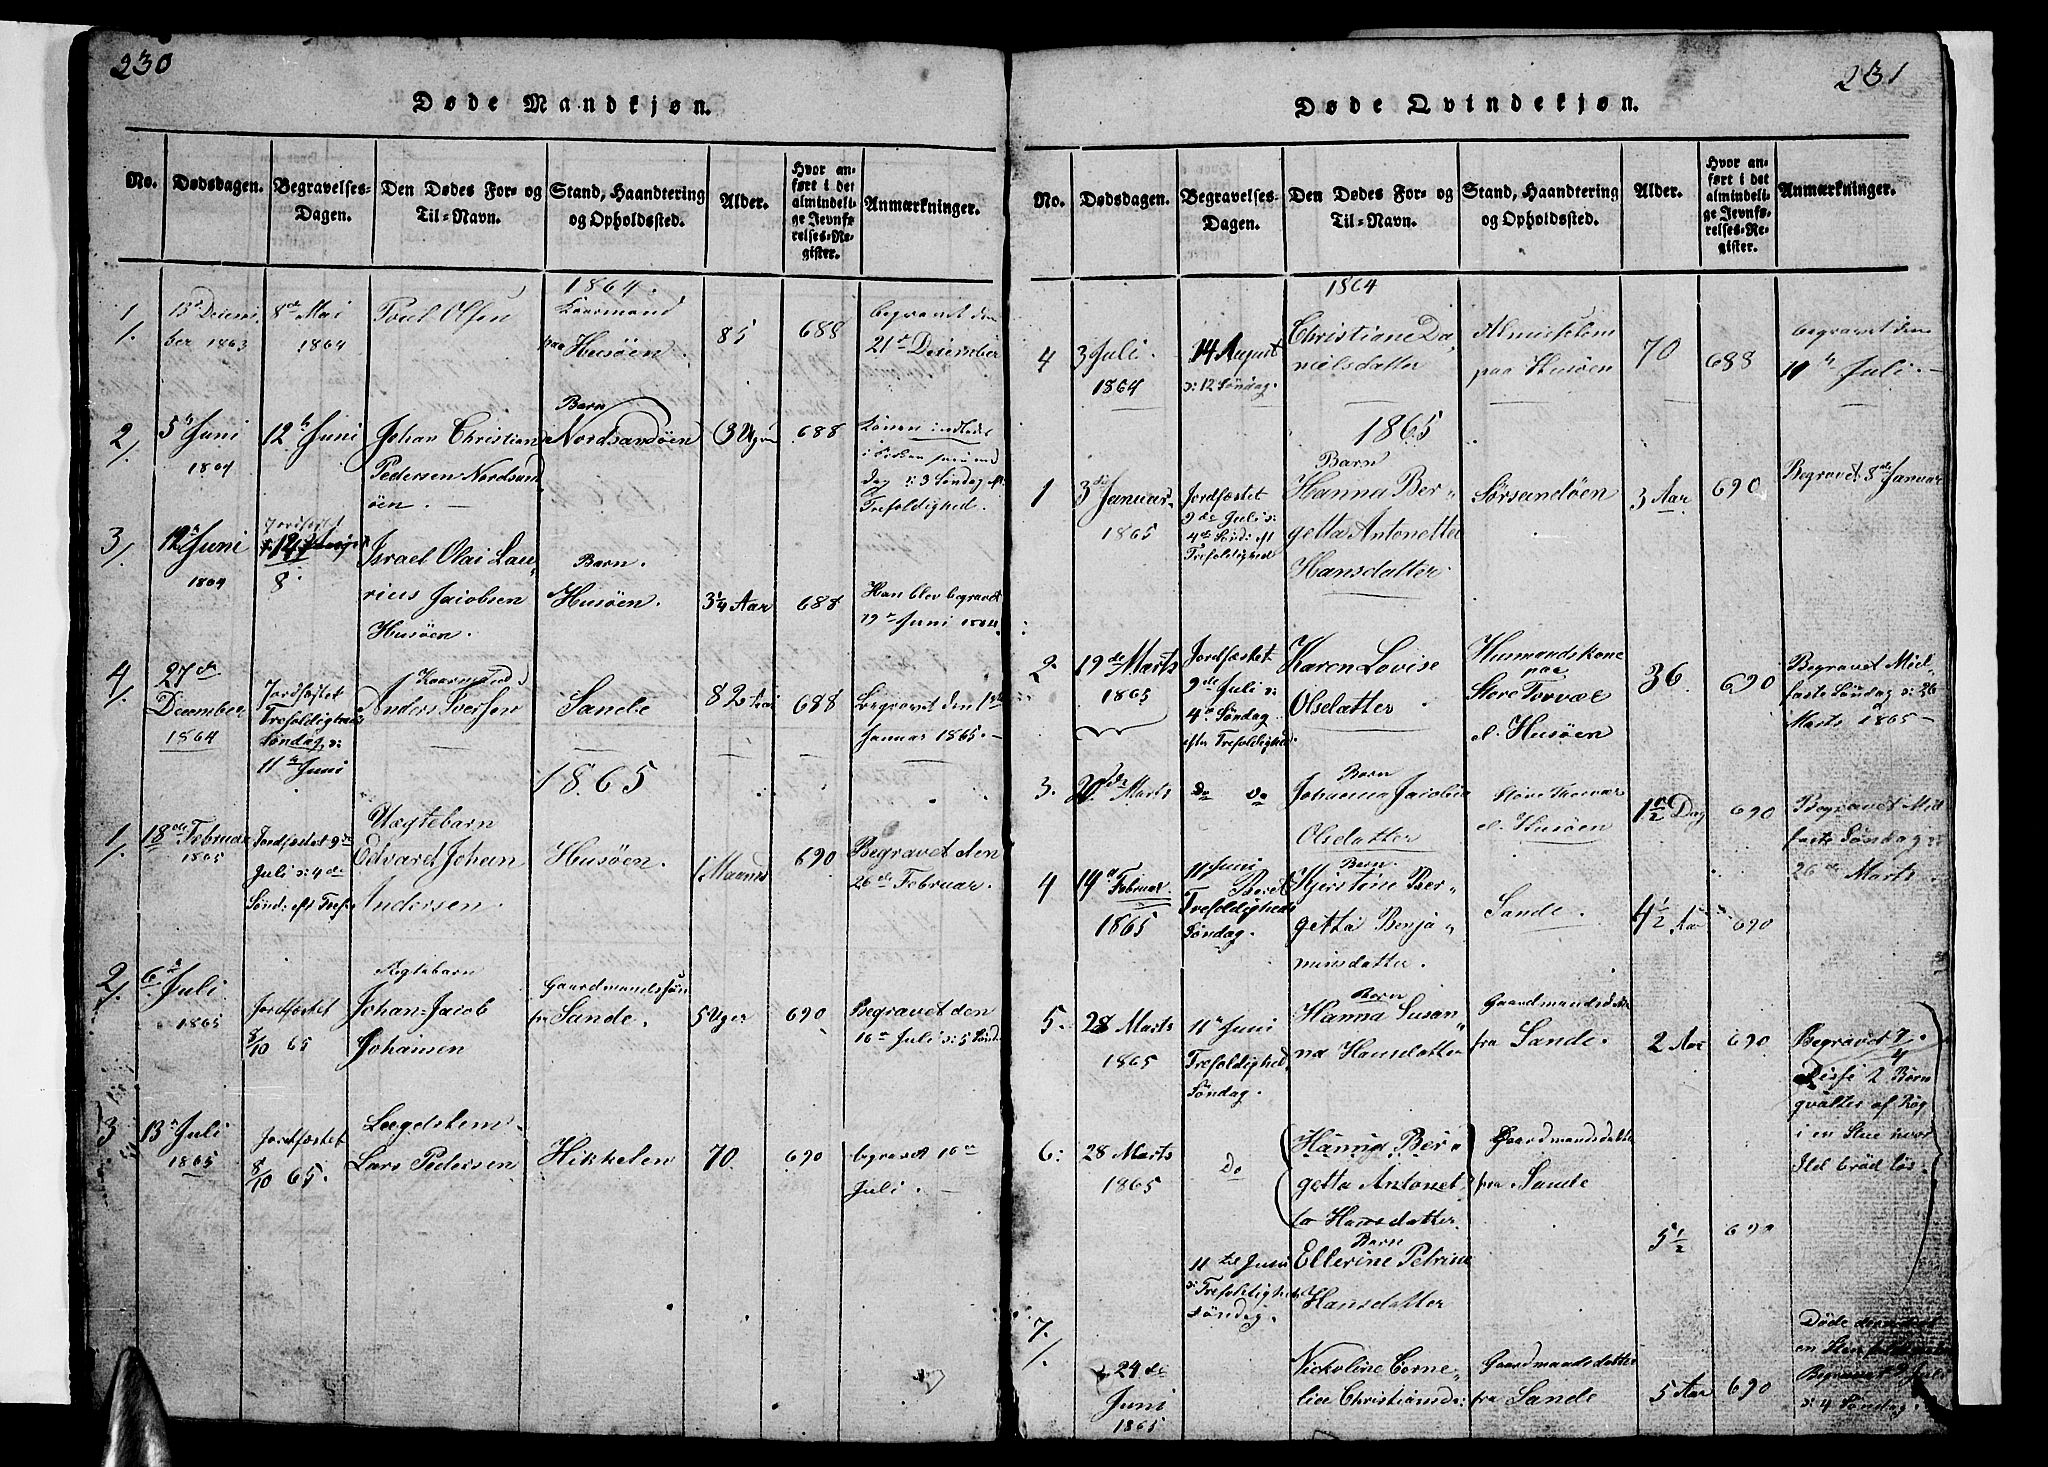 230
Døde Mandkjøn.
No.
Dødsdagen.
Begravelses-
Dagen.
Den Dødes For- og
Til-Navn.
Stand, Haandtering
og Opholdssted.
Alder.
Hvor an-
ført i det
almindeli-
ge Jevnfø-
relses-Re-
gister.
Anmærkninger.
1864.
1/.
13de Decem-
ber 1863
8de Mai
1864
Poul Olsen
Kaarmand
paa Husøen.
85
688
begravet den
21de December
2/.
5te Juni
1864
12te Juni
Johan Christian
Pedersen Nordsand
øen.
Barn
Nordsandøen
3 Uger
688
Konen indledet
i Kirken
dag 3 Søndag eft
Trefoldighed.
3/.
12te Juni
1864
Jordfæstet
8.
Israel Olai Lau-
rius Jacobsen
Husøen.
Barn.
Husøen.
3 1/4 Aar
688
Han blev begravet
19de Juni 1864
4/.
27de
December
1864
Jordfæstet
Trefoldigheds
Søndag d:
11te Juni
Kaarmand
Anders Iversen
Sande
82
688
Begravet den 1ste
Januar 1865.
1865
1/.
18de Februar
1865
Jordfæstet 9de
Juli d: 4de
Sønd: eft Tref.
Uægtebarn
Edvard Johan
Andersen.
Husøen.
1 Maaned
690
Begravet den
26de Februar.
2/.
6te Juli
1865
Jordfæstet
8/10 65
Ægtebarn
Johan Jacob
Johansen
Gaardmandssøn
fra Sande.
5 Uger
690
Begravet den
16de Juli d: 5 Sønd.
3
13de Juli
1865
Jordfæstet
8/10 65.
Lægdslem
Lars Pedersen
Hikkelen
70.
690
begravet 16de
Juli.
231
Døde Qvindekjøn.
No.
Dødsdagen.
Begravelses-
Dagen.
Den Dødes For- og
Til-Navn.
Stand, Haandtering
og Opholdssted.
Alder.
Hvor an-
ført i det
almindeli-
ge Jevnfø-
relses-Re-
gister.
Anmærkninger.
1864
4
3 Juli.
1864
14 August
d: 12 Søndag.
Christiane Da-
nielsdatter
Almuelem
paa Husøen
70
688
begravet den
11te Juli.
1865
1
3de Januar
1865
Jordfæstet
9de Juli d:
4de Sønd: eft
Trefoldighed
Barn
Hanna Ber-
getta Antonette
Hansdatter
Sørsandøen
3 Aar
690
Begravet 8de Januar
2.
19de Marts
1865
Jordfæstet
9de Juli d:
4de Søndag
efter Trefoldighed.
Karen Lovise
Olsdatter
Husmandskone
paa
Store Torvær
el. Husøen
36.
690
Begravet Mid-
faste Søndag d: 26
Marts 1865
3.
20de Marts
do do
Barn
Johanna Jacobin
Olsdatter
Store Torvær
el. Husøen
1 1/2 Dag
690
Begravet Mid
faste Søndag d:
26de Marts.
4
19de Februar.
1865
11 Juni
Trefoldigheds
Søndag.
Barn.
Kjerstine Ber-
getta Benja-
minsdatter.
Sande.
4 1/2 Aar
690
5.
28 Marts
1865
11te Juni
Trefoldighed
Søndag.
Barn
Hanna Susan-
na Hansdatter
Gaardmandsdatter
fra Sande.
2 Aar
690
Begravet 7/4.
Disse 2 Børn
qvaltes af Røg
i en Stue hvor
Ild brød løs.
6:
28 Marts
1865
Do
Hanna Ber-
getta Antonet
ta Hansdatter.
Gaardmandsdatter
fra Sande
5 1/2
690
11te Juni
d: Trefoldigheds
søndag.
Barn
Ellerine Petrine
Hansdatter
7.
/.
24de
Juni
1865
Nickoline Corne-
lia Christiansd:
Gaardmandsdatter
fra Sande
5 Aar
690
Døde
en
Begravet 9 Juli
d: 4 Søndag.